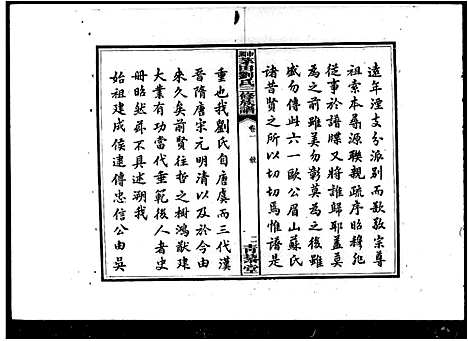 遠年湮支分派別而欲敦宗尊
祖索本尋源聯親疏序昭穆非
從事於譜牒又將誰歸耶蓋莫
為之前雖美勿彰莫為之後雖
盛勿傳此六一歐公眉山蘇氏
諸昔賢之所以切切焉惟譜是
劉氏三修族譜
卷一
二
青藜堂
重也我劉氏自唐虞而三代漢
晉隋唐宋元明清以及於今由
來久矣前賢往哲之樹鴻猷建
大業有功當代垂範後人者史
冊昭然茲不具述溯我
始祖建成侯諱傳忠信公由吳